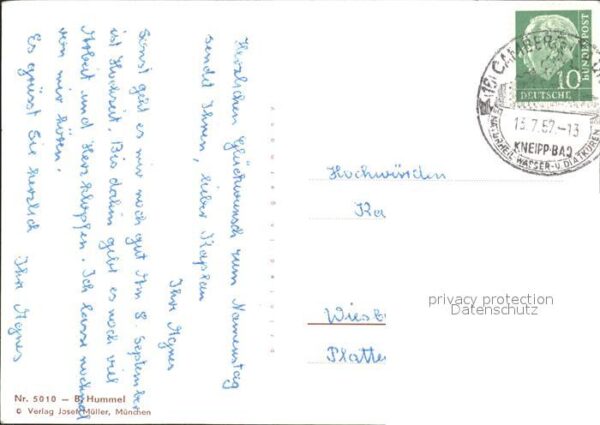 Herzlichen Glückwunsch zum Namenstag
sendet Ihnen, lieber Kaplan
Ihre Agnes
Sonst geht es mir noch gut. Am 8. September
ist Hochzeit. Bis dahin gibt es noch viel
Arbeit und Herzklopfen. Ich lasse nochmal
von mir hören.
Es grüsst Sie herzlich
Ihre Agnes
Nr. 5010 — B. Hummel
© Verlag Josef Müller, München
DEUTSCHE
BUNDESPOST
10
(16) CAMBERG
13.7.57.-13
KNEIPP-BAD
WASSER- U. DIÄTKUREN
Hochwürden
Ka
Wiesb
Platte
privacy protection
Datenschutz